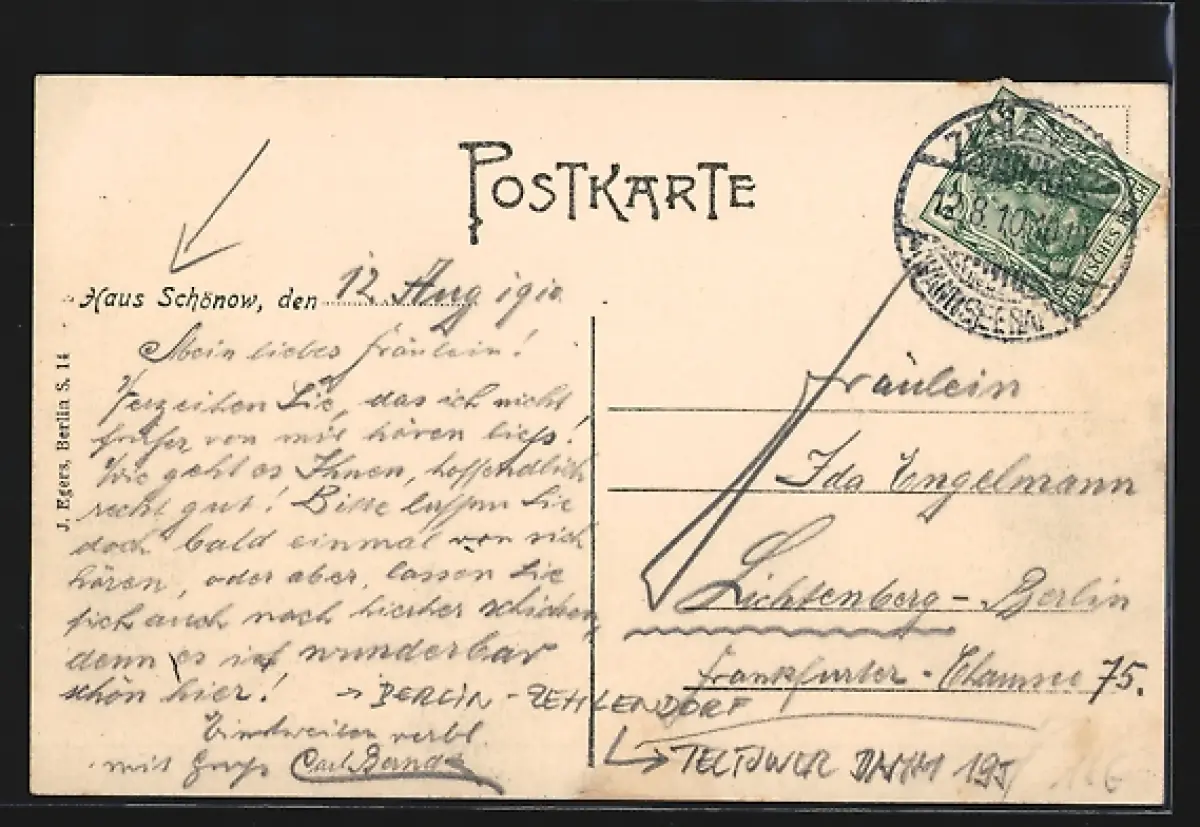 POSTKARTE
Haus Schönow, den 12 Aug 1910
Mein liebes Fräulein!
Verzeihen Sie, das ich nicht
früher von mir hören ließ!
Wie geht es Ihnen, hoffendlich
recht gut! Bitte lassen Sie
doch bald einmal von sich
hören, oder aber, lassen Sie
sich auch nach hierher schicken,
denn es ist wunderbar
schön hier!
Einstweilen verbl.
mit Gruß Carl
J. Egers, Berlin S. 14
12.8.10
DEUTSCHES REICH
(WANNSEEBAHN)
Fräulein
Ida Engelmann
Lichtenberg - Berlin
Frankfurter - Chaussee 75.
→ BERLIN - ZEHLENDORF
→ TELTOWER DAMM